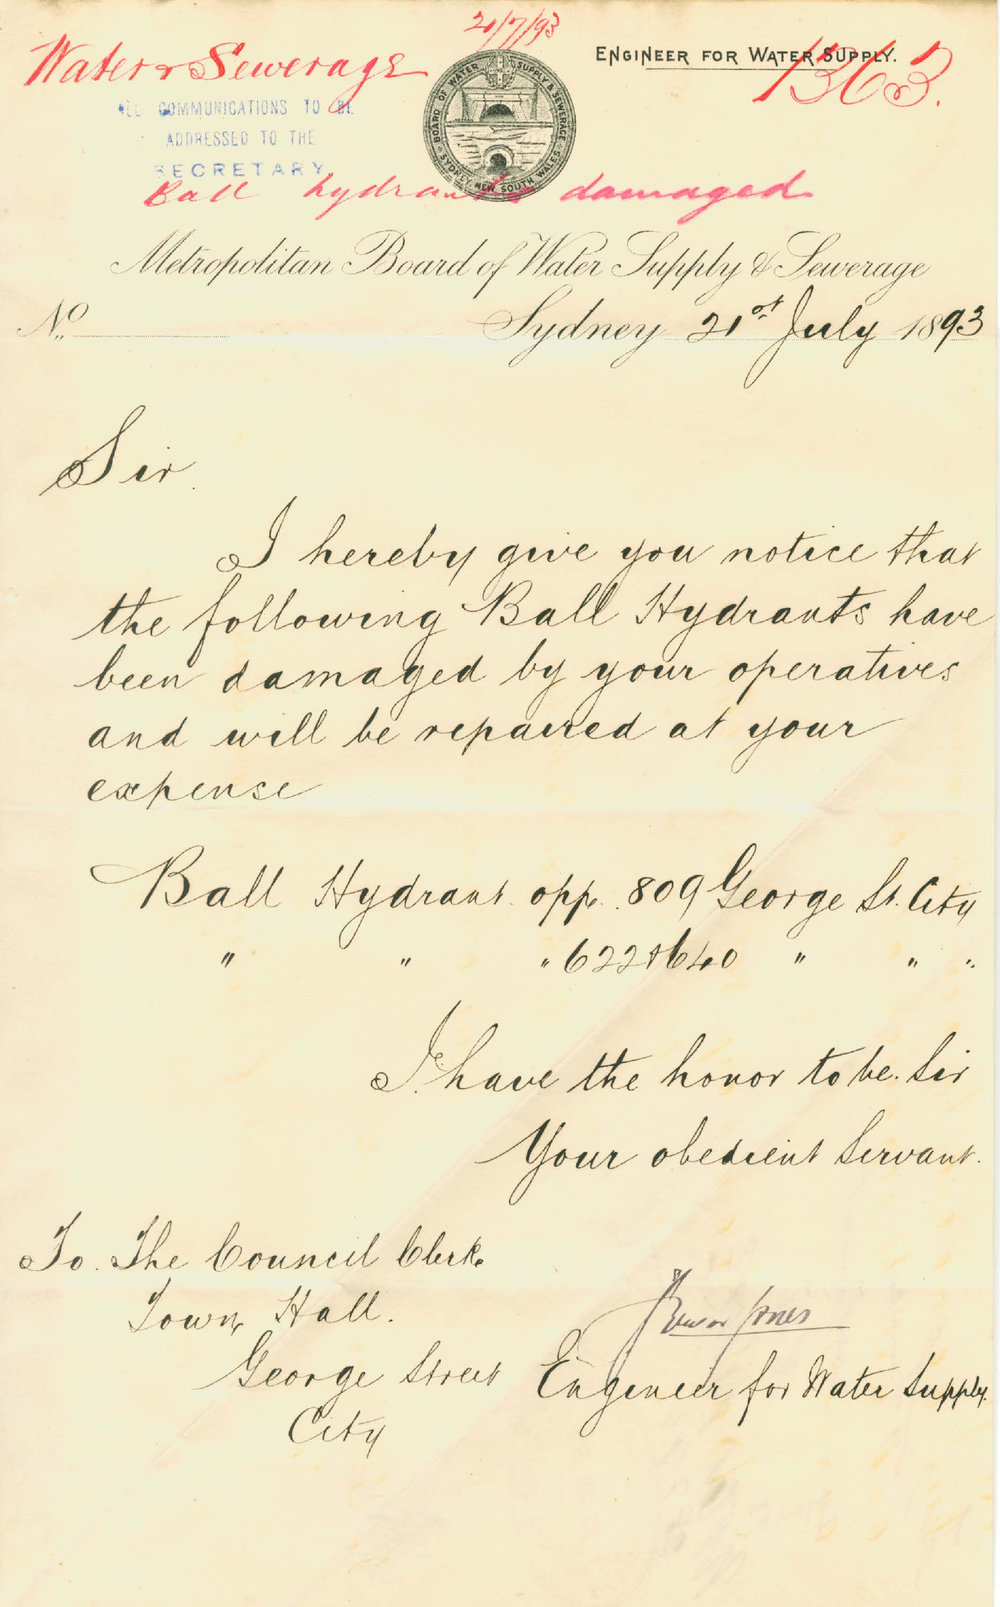 21/7/93
Water & Sewerage
ENGINEER FOR WATER SUPPLY.
1363.
ALL COMMUNICATIONS TO BE
ADDRESSED TO THE
SECRETARY
BOARD OF WATER SUPPLY & SEWERAGE
SYDNEY, NEW SOUTH WALES
Ball hydrants damaged
Metropolitan Board of Water Supply & Sewerage
No. Sydney 21st July 1893
Sir
I hereby give you notice that
the following Ball Hydrants have
been damaged by your operatives
and will be repaired at your
expense
Ball Hydrant opp. 809 George St. City
" " " 622 & 640 " " "
I have the honor to be. Sir
Your obedient Servant.
To. The Council Clerk.
Town Hall.
George Street
City
Trevor Jones
Engineer for Water Supply.